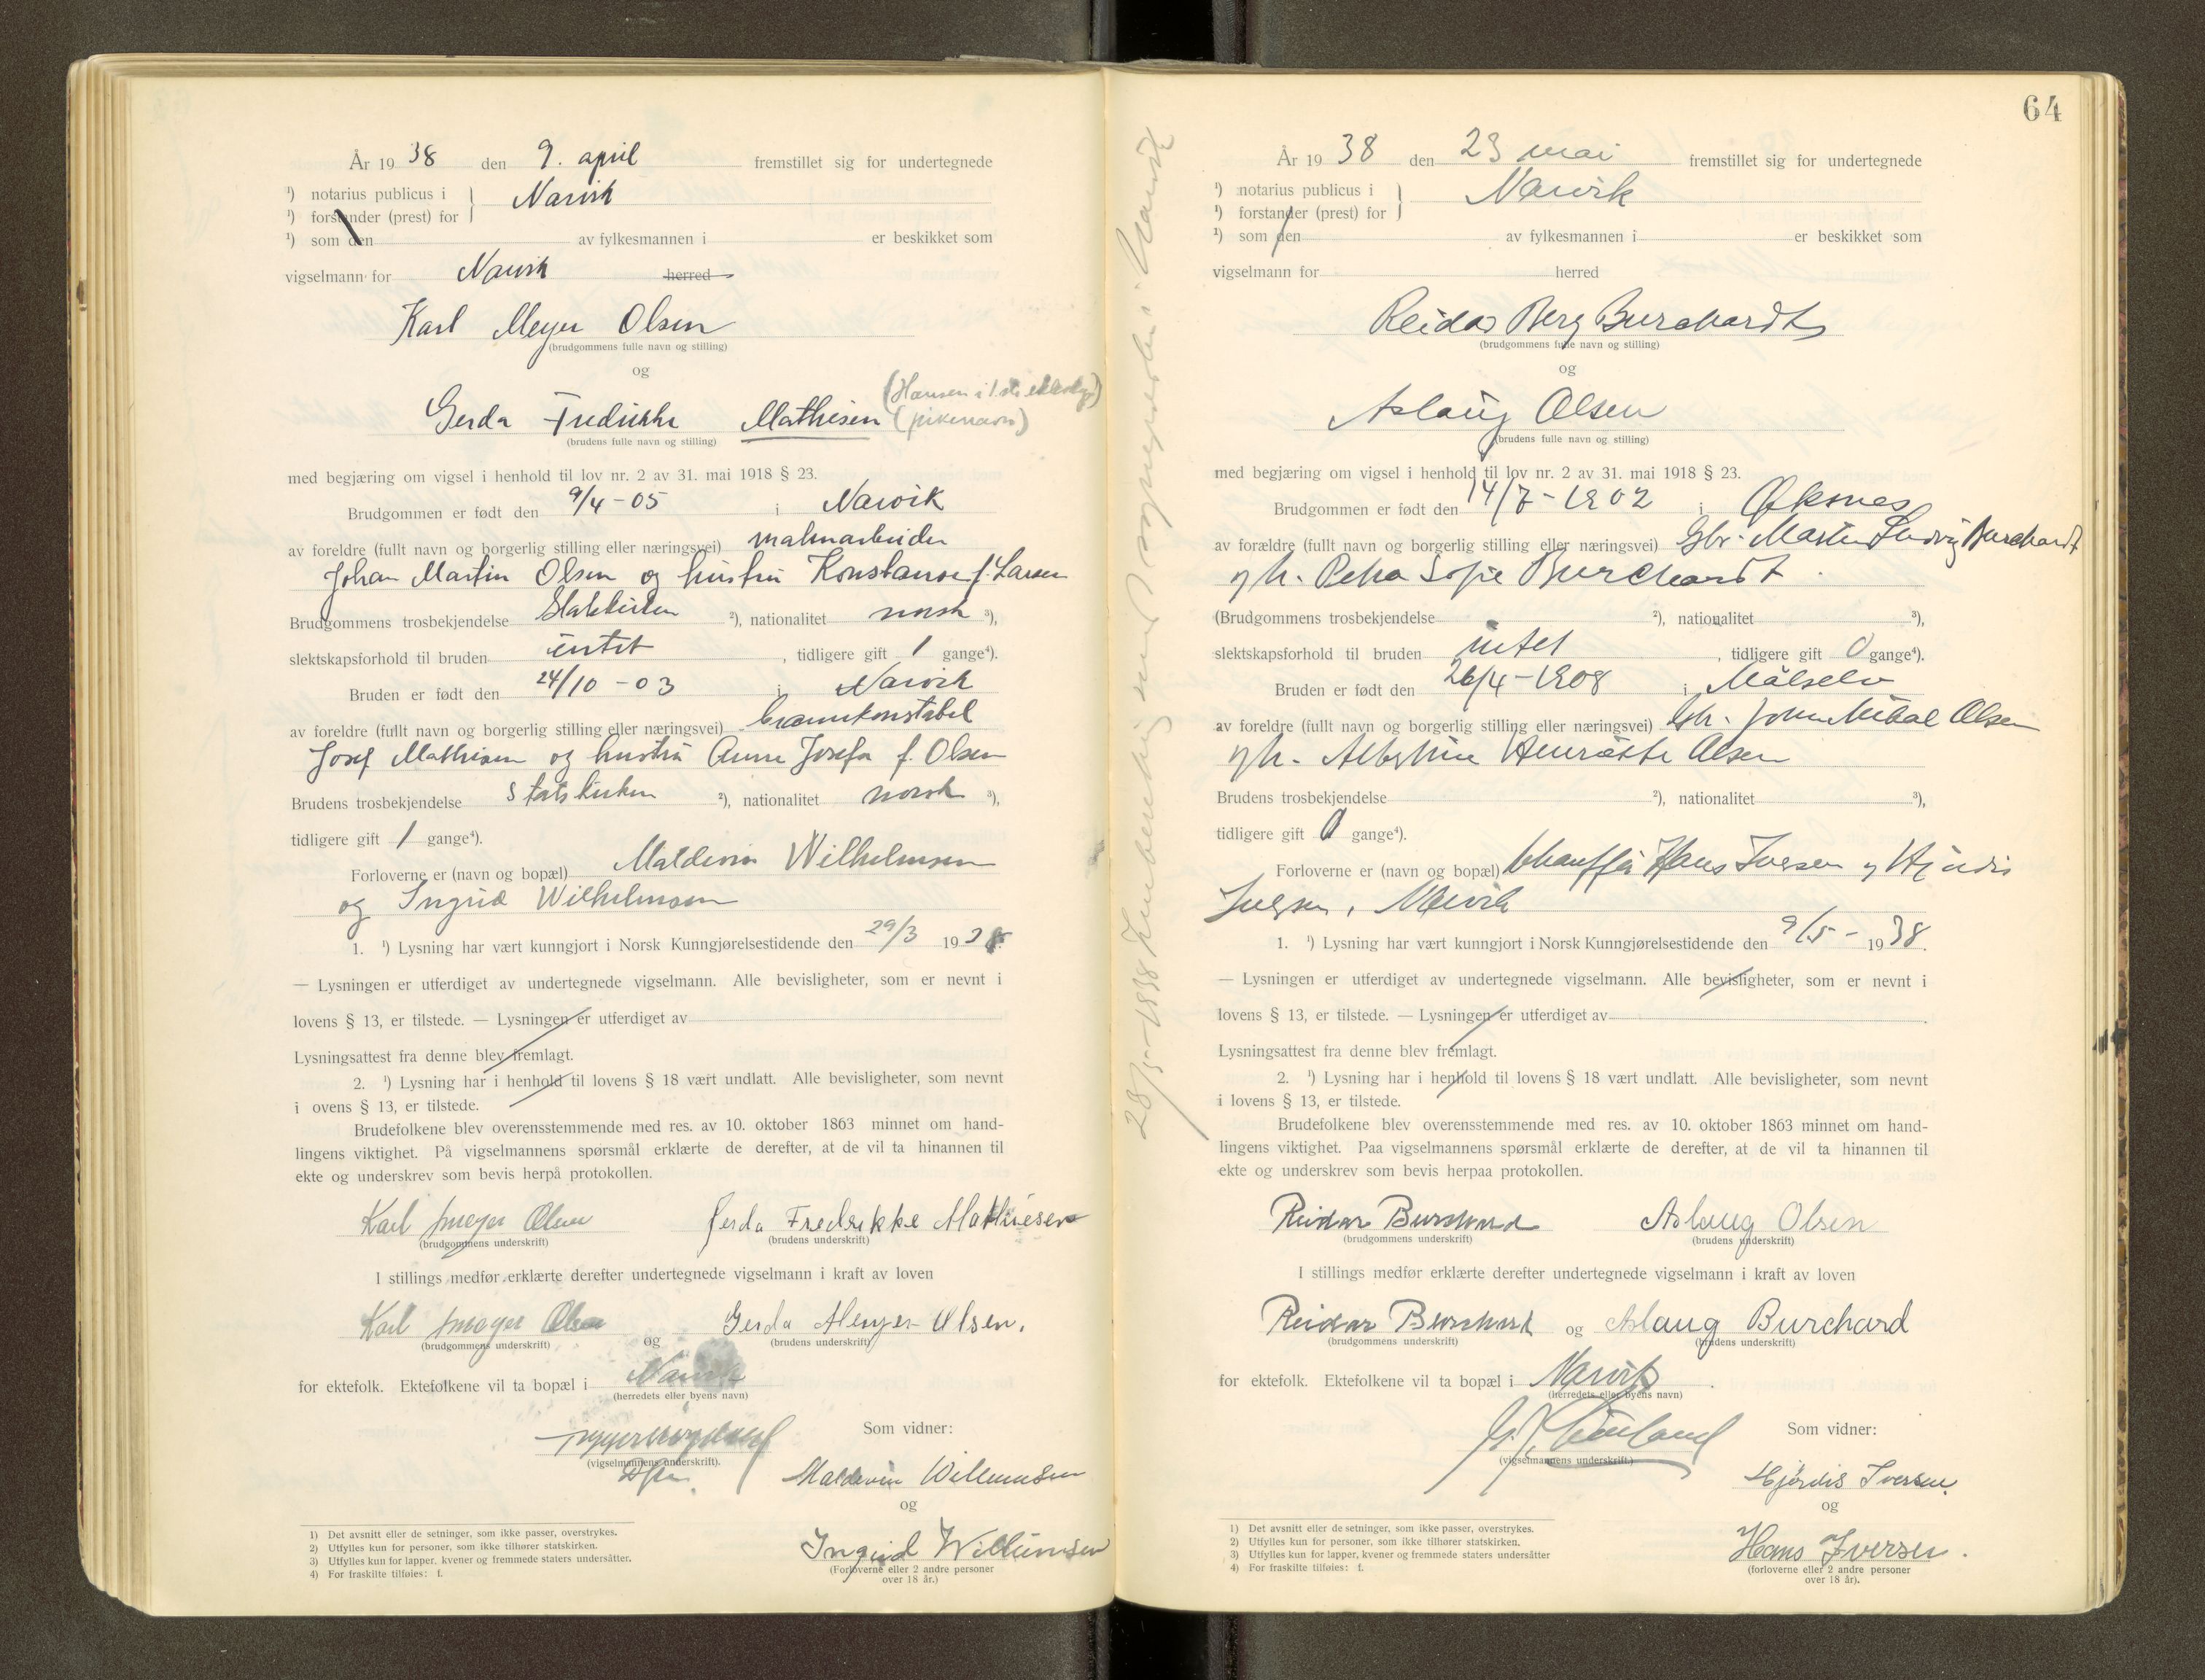 År 1938 den 9. april fremstillet sig for undertegnede
¹) notarius publicus i } Narvik
¹) forstander (prest) for
¹) som den av fylkesmannen i er beskikket som
vigselmann for Narvik herred
Karl Meyer Olsen
(brudgommens fulle navn og stilling)
og
(Hansen i 1ste ekteskap)
Gerda Fredrikke Mathisen (pikenavn)
(brudens fulle navn og stilling)
med begjæring om vigsel i henhold til lov nr. 2 av 31. mai 1918 § 23.
Brudgommen er født den 9/4-05 i Narvik
av foreldre (fullt navn og borgerlig stilling eller næringsvei) malmarbeider
Johan Martin Olsen og hustru Konstanse f. Larsen
Brudgommens trosbekjendelse Statskirken ²), nationalitet norsk ³),
slektskapsforhold til bruden intet, tidligere gift 1 gange⁴).
Bruden er født den 24/10-03 i Narvik
av foreldre (fullt navn og borgerlig stilling eller næringsvei) brannkonstabel
Josef Mathisen og hustru Anne Josefa f. Olsen
Brudens trosbekjendelse Statskirken ²), nationalitet norsk ³),
tidligere gift 1 gange⁴).
Forloverne er (navn og bopæl) Maldevin Wilhelmsen
og Ingrid Wilhelmsen
1. ¹) Lysning har vært kunngjort i Norsk Kunngjørelsestidende den 29/3 1938.
— Lysningen er utferdiget av undertegnede vigselmann. Alle bevisligheter, som er nevnt i
lovens § 13, er tilstede. — Lysningen er utferdiget av
Lysningsattest fra denne blev fremlagt.
2. ¹) Lysning har i henhold til lovens § 18 vært undlatt. Alle bevisligheter, som nevnt
i ovens § 13, er tilstede.
Brudefolkene blev overensstemmende med res. av 10. oktober 1863 minnet om hand-
lingens viktighet. På vigselmannens spørsmål erklærte de derefter, at de vil ta hinannen til
ekte og underskrev som bevis herpå protokollen.
Karl Meyer Olsen Gerda Fredrikke Mathiesen
(brudgommens underskrift) (brudens underskrift)
I stillings medfør erklærte derefter undertegnede vigselmann i kraft av loven
Karl Meyer Olsen og Gerda Meyer Olsen.
(brudgommens underskrift) (brudens underskrift)
for ektefolk. Ektefolkene vil ta bopæl i Narvik
(herredets eller byens navn)
Som vidner:
(vigselmannens underskrift).
Maldevin Willumsen
og
Ingrid Willumsen
(Forloverne eller 2 andre personer
over 18 år.)
1) Det avsnitt eller de setninger, som ikke passer, overstrykes.
2) Utfylles kun for personer, som ikke tilhører statskirken.
3) Utfylles kun for lapper, kvener og fremmede staters undersåtter.
4) For fraskilte tilføies: f.
64
År 1938 den 23 mai fremstillet sig for undertegnede
¹) notarius publicus i } Narvik
¹) forstander (prest) for
¹) som den av fylkesmannen i er beskikket som
vigselmann for herred
Reidar Berg Burchardt
(brudgommens fulle navn og stilling)
og
Aslaug Olsen
(brudens fulle navn og stilling)
med begjæring om vigsel i henhold til lov nr. 2 av 31. mai 1918 § 23.
Brudgommen er født den 14/7-1902 i Øksnes
av forældre (fullt navn og borgerlig stilling eller næringsvei) Gbr. Martin Ludvig Burchardt
og h. Petra Sofie Burchardt.
(Brudgommens trosbekjendelse ²), nationalitet ³),
slektskapsforhold til bruden intet, tidligere gift 0 gange⁴).
Bruden er født den 26/4-1908 i Målselv
av foreldre (fullt navn og borgerlig stilling eller næringsvei) Gbr. Johan Mikal Olsen
og h. Albertine Henriette Olsen
Brudens trosbekjendelse ²), nationalitet ³),
tidligere gift 0 gange⁴).
Forloverne er (navn og bopæl) Chauffør Hans Iversen og Hjørdis
Iversen, Narvik
1. ¹) Lysning har vært kunngjort i Norsk Kunngjørelsestidende den 9/5 - 1938.
— Lysningen er utferdiget av undertegnede vigselmann. Alle bevisligheter, som er nevnt i
lovens § 13, er tilstede. — Lysningen er utferdiget av
Lysningsattest fra denne blev fremlagt.
2. ¹) Lysning har i henhold til lovens § 18 vært undlatt. Alle bevisligheter, som nevnt
i lovens § 13, er tilstede.
Brudefolkene blev overensstemmende med res. av 10. oktober 1863 minnet om hand-
lingens viktighet. Paa vigselmannens spørsmål erklærte de derefter, at de vil ta hinannen til
ekte og underskrev som bevis herpaa protokollen.
Reidar Burchard Aslaug Olsen
(brudgommens underskrift) (brudens underskrift)
I stillings medfør erklærte derefter undertegnede vigselmann i kraft av loven
Reidar Burchard og Aslaug Burchard
(brudgommens underskrift) (brudens underskrift)
for ektefolk. Ektefolkene vil ta bopæl i Narvik.
(herredets eller byens navn)
Som vidner:
(vigselmannens underskrift.)
Hjørdis Iversen.
og
Hans Iversen.
(forloverne eller 2 andre personer
over 18 år).
1) Det avsnitt eller de setninger, som ikke passer, overstrykes.
2) Utfylles kun for personer, som ikke tilhører statskirken.
3) Utfylles kun for lapper, kvener og fremmede staters undersåtter
4) For fraskilte tilføies: f.